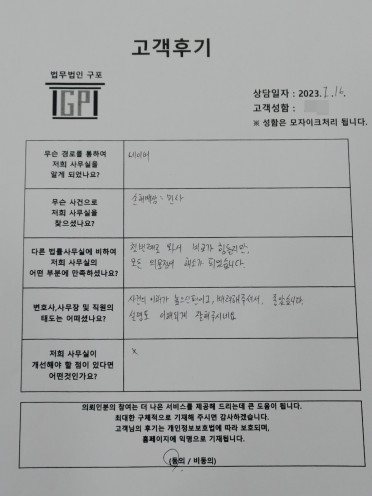 고객후기
법무법인 구포
GP
상담일자 : 2023. 7. 16.
고객성함 :
※ 성함은 모자이크처리 됩니다.
무슨 경로를 통하여
저희 사무실을
알게 되었나요?
네이버
무슨 사건으로
저희 사무실을
찾으셨나요?
손해배상 : 민사
다른 법률사무실에 비하여
저희 사무실의
어떤 부분에 만족하셨나요?
첫번째로 와서 비교가 힘들지만,
모든 의문점이 해소가 되었습니다.
변호사,사무장 및 직원의
태도는 어떠셨나요?
사건의 이해가 높으신편이고, 배려해주셔서, 좋았습니다.
설명도 이해되게 잘해주시네요
저희 사무실이
개선해야 할 점이 있다면
어떤것인가요?
x
의뢰인분의 참여는 더 나은 서비스를 제공해 드리는데 큰 도움이 됩니다.
최대한 구체적으로 기재해 주시면 감사하겠습니다.
고객님의 후기는 개인정보보호법에 따라 보호되며,
홈페이지에 익명으로 기재됩니다.
(동의 / 비동의)